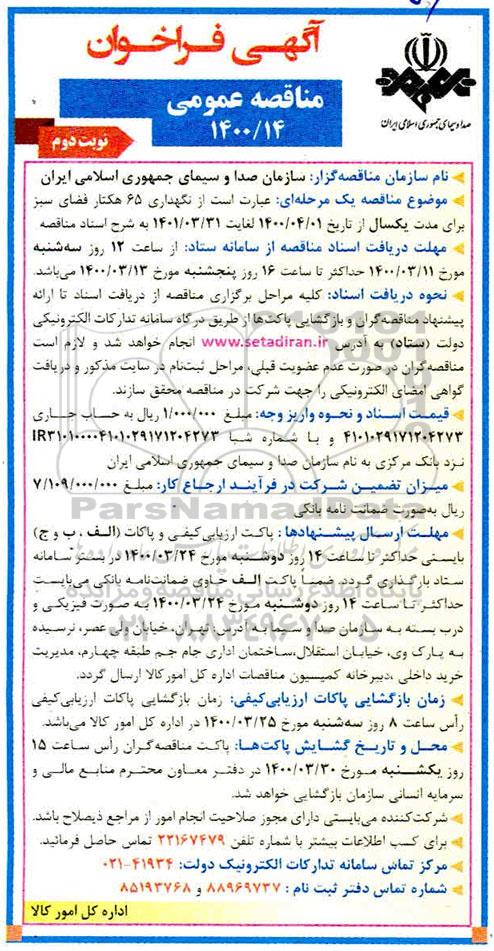 آگهی فراخوان
مناقصه عمومی
۱۴۰۰/۱۴
نوبت دوم
صدا و سیمای جمهوری اسلامی ایران
نام سازمان مناقصه‌گزار: سازمان صدا و سیمای جمهوری اسلامی ایران
موضوع مناقصه یک مرحله‌ای: عبارت است از نگهداری ۶۵ هکتار فضای سبز
برای مدت یکسال از تاریخ ۱۴۰۰/۰۴/۰۱ لغایت ۱۴۰۱/۰۳/۳۱ به شرح اسناد مناقصه
مهلت دریافت اسناد مناقصه از سامانه ستاد: از ساعت ۱۲ روز سه‌شنبه
مورخ ۱۴۰۰/۰۳/۱۱ حداکثر تا ساعت ۱۶ روز پنجشنبه مورخ ۱۴۰۰/۰۳/۱۳ می‌باشد.
نحوه دریافت اسناد: کلیه مراحل برگزاری مناقصه از دریافت اسناد تا ارائه
پیشنهاد مناقصه‌گران و بازگشایی پاکت‌ها از طریق درگاه سامانه تدارکات الکترونیکی
دولت (ستاد) به آدرس www.setadiran.ir انجام خواهد شد و لازم است
مناقصه‌گران در صورت عدم عضویت قبلی، مراحل ثبت‌نام در سایت مذکور و دریافت
گواهی امضای الکترونیکی را جهت شرکت در مناقصه محقق سازند.
قیمت اسناد و نحوه واریز وجه: مبلغ ۱/۰۰۰/۰۰۰ ریال به حساب جاری
۴۱۰۱۰۲۹۱۷۱۲۰۴۲۷۳ و یا شماره شبا IR۳۱۰۱۰۰۰۰۴۱۰۱۰۲۹۱۷۱۲۰۴۲۷۳
نزد بانک مرکزی به نام سازمان صدا و سیمای جمهوری اسلامی ایران
میزان تضمین شرکت در فرآیند ارجاع کار: مبلغ ۷/۱۰۹/۰۰۰/۰۰۰
ریال به‌صورت ضمانت نامه بانکی
مهلت ارسال پیشنهادها: پاکت ارزیابی‌کیفی و پاکات (الف، ب و ج)
بایستی حداکثر تا ساعت ۱۴ روز دوشنبه مورخ ۱۴۰۰/۰۳/۲۴ در بستر سامانه
ستاد بارگذاری گردد. ضمناً پاکت الف حاوی ضمانت‌نامه بانکی می‌بایست
حداکثر تا ساعت ۱۴ روز دوشنبه مورخ ۱۴۰۰/۰۳/۲۴ به صورت فیزیکی و
درب بسته به سازمان صدا و سیما به آدرس: تهران، خیابان ولی عصر، نرسیده
به پارک وی، خیابان استقلال، ساختمان اداری جام جم طبقه چهارم، مدیریت
خرید داخلی، دبیرخانه کمیسیون مناقصات اداره کل امور کالا ارسال گردد.
زمان بازگشایی پاکات ارزیابی‌کیفی: زمان بازگشایی پاکات ارزیابی‌کیفی
رأس ساعت ۸ روز سه‌شنبه مورخ ۱۴۰۰/۰۳/۲۵ در اداره کل امور کالا می‌باشد.
محل و تاریخ گشایش پاکت‌ها: پاکت مناقصه‌گران رأس ساعت ۱۵
روز یکشنبه مورخ ۱۴۰۰/۰۳/۳۰ در دفتر معاون محترم منابع مالی و
سرمایه انسانی سازمان بازگشایی خواهد شد.
شرکت‌کننده می‌بایستی دارای مجوز صلاحیت انجام امور از مراجع ذیصلاح باشد.
برای کسب اطلاعات بیشتر با شماره تلفن ۲۲۱۶۷۴۷۹ تماس حاصل فرمائید.
مرکز تماس سامانه تدارکات الکترونیک دولت: ۰۲۱-۴۱۹۳۴
شماره تماس دفتر ثبت نام: ۸۸۹۶۹۷۳۷ و ۸۵۱۹۳۷۶۸
اداره کل امور کالا
ParsNamadData
پایگاه اطلاع رسانی مناقصه و مزایده
۰۲۱-۸۸۳۴۹۶۷۰-۵